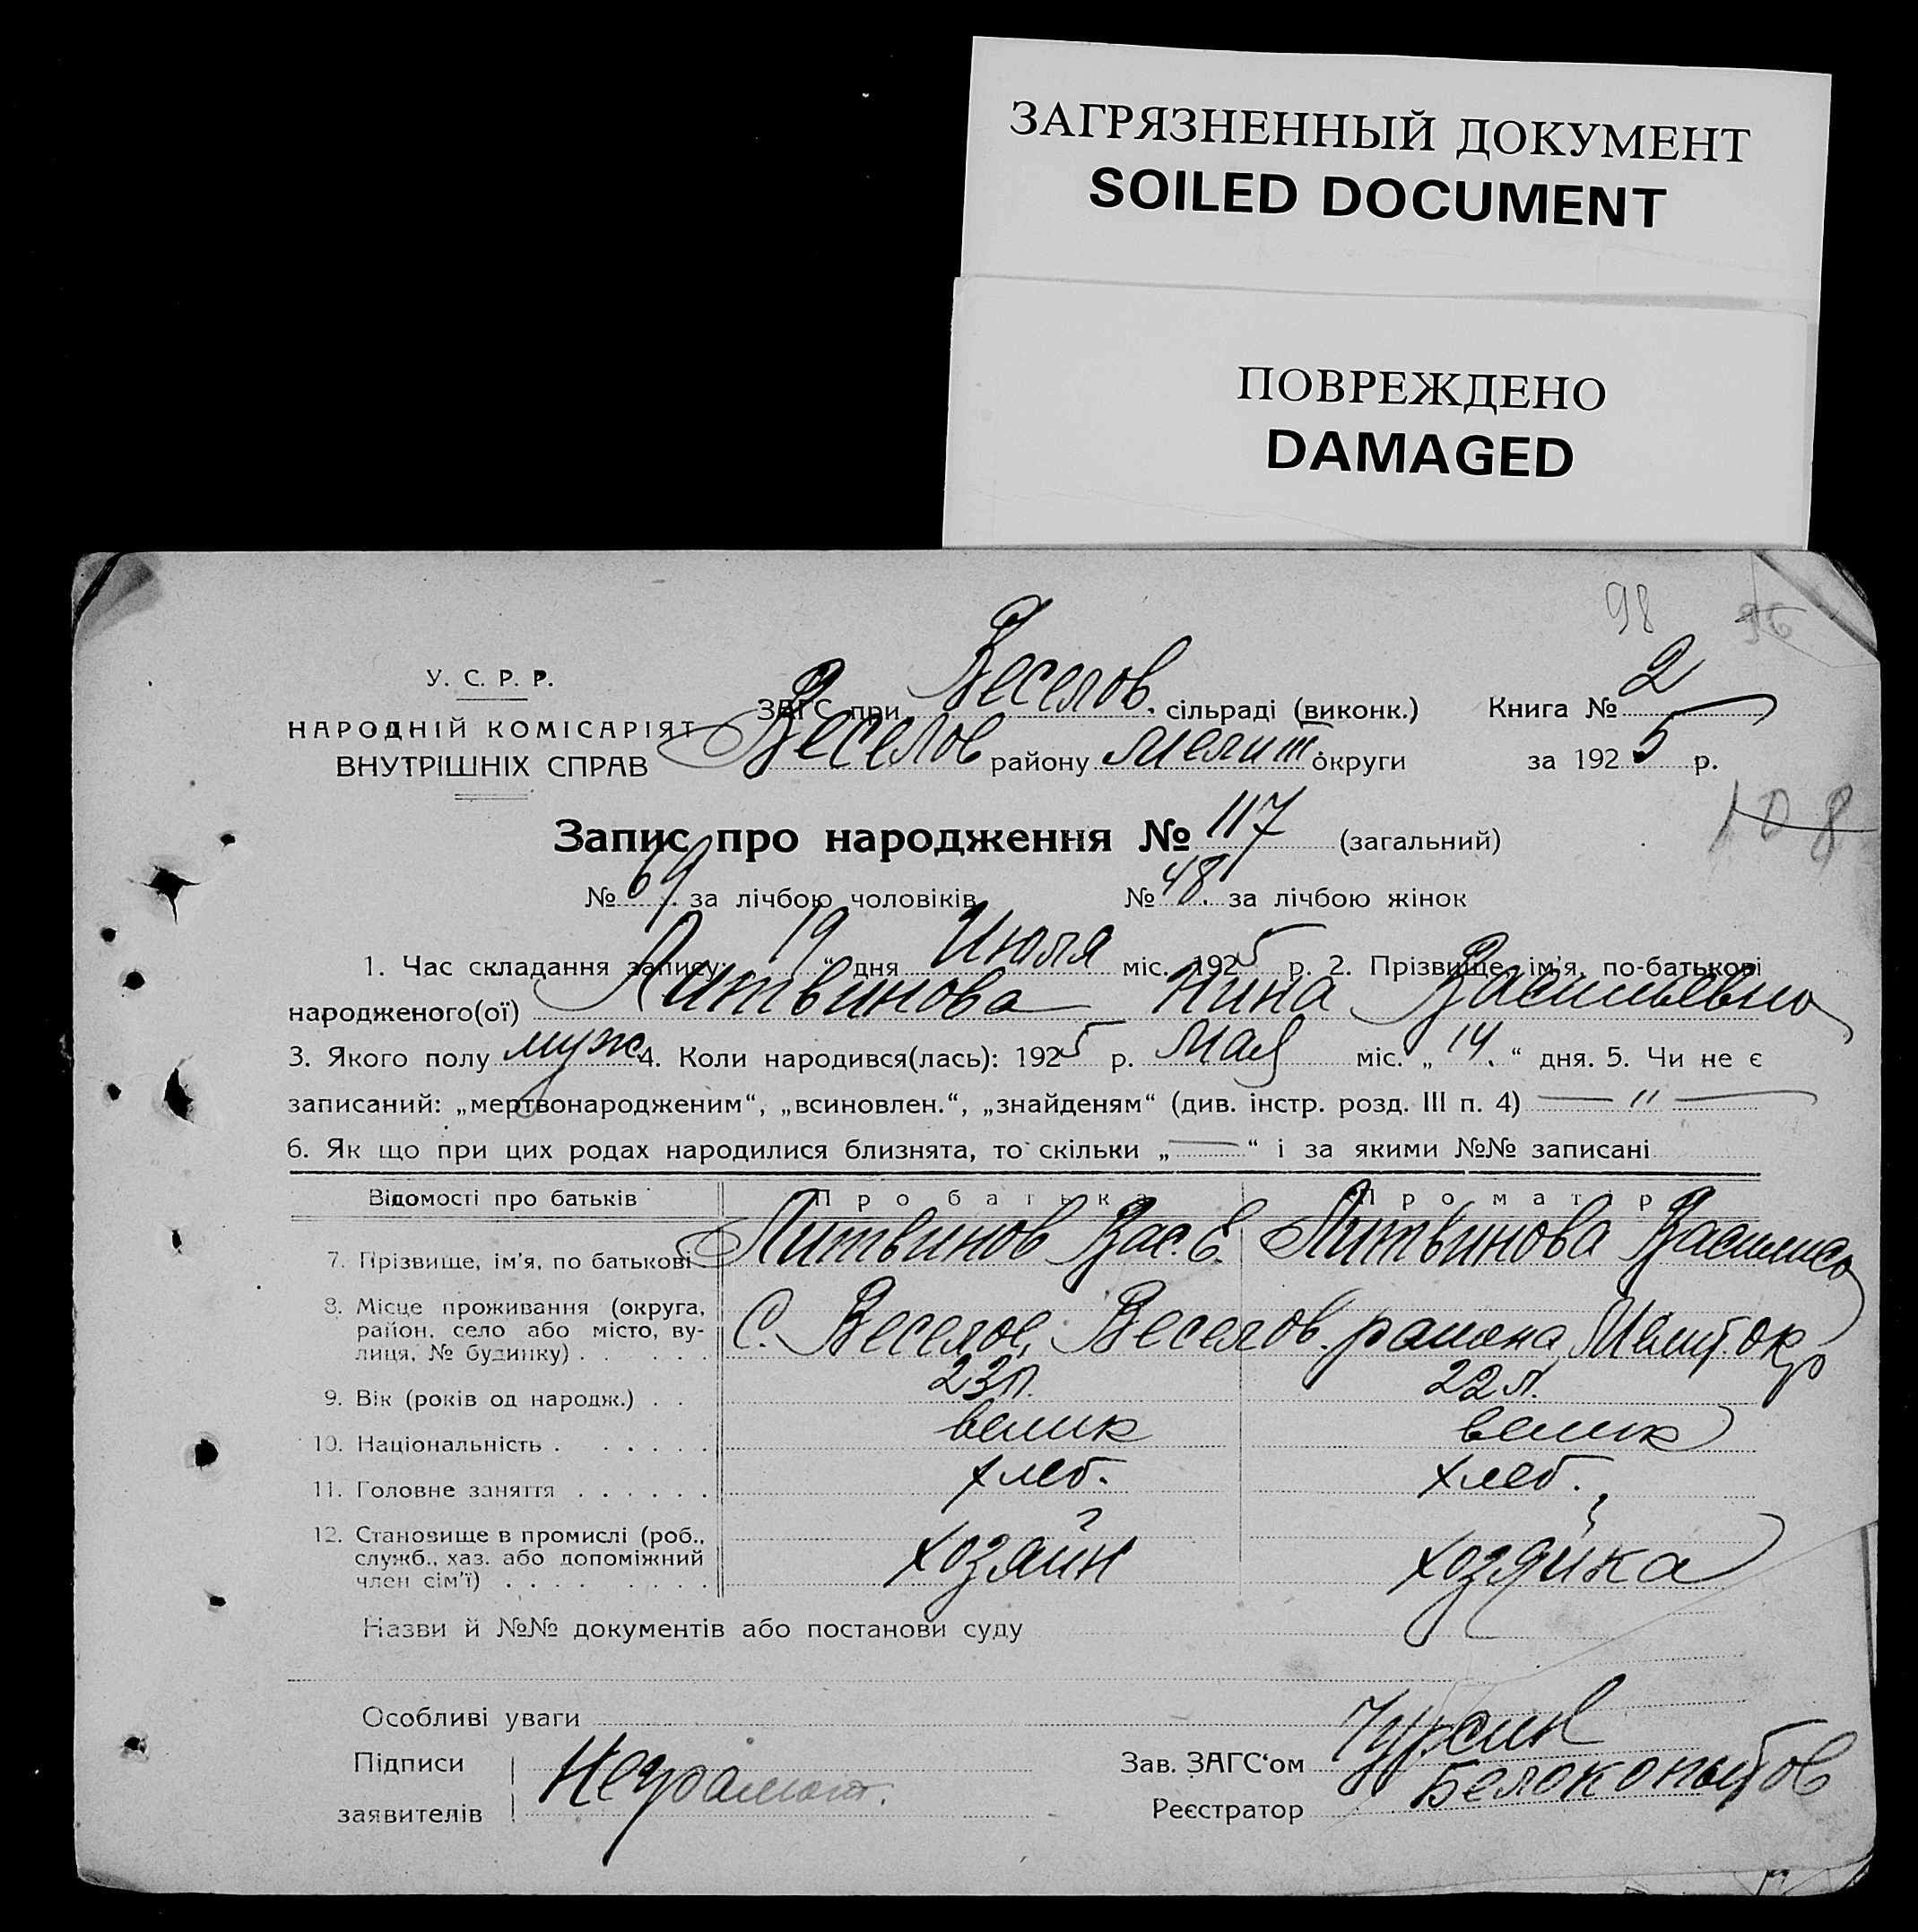 ЗАГРЯЗНЕННЫЙ ДОКУМЕНТ
SOILED DOCUMENT
ПОВРЕЖДЕНО
DAMAGED
98 96
У. С. Р. Р.
НАРОДНІЙ КОМІСАРІЯТ
ВНУТРІШНІХ СПРАВ
ЗАГС при Веселов. сільраді (виконк.) Книга № 2
Веселов району Мелит. округи за 1925 р.
108
Запис про народження № 117 (загальний)
№ 69 за лічбою чоловіків № 48. за лічбою жінок
1. Час складання запису: 19 “ дня Июля міс. 1925 р. 2. Прізвище, ім'я, по-батькові
народженого(ої) Литвинова Нина Васильевна
3. Якого полу муж. 4. Коли народився(лась): 1925 р. Мая міс. „ 14. “ дня. 5. Чи не є
записаний: „мертвонародженим“, „всиновлен.“, „знайденям“ (див. інстр. розд. III п. 4) — „ —
6. Як що при цих родах народилися близнята, то скільки „ — “ і за якими №№ записані
Відомості про батьків Про батька Про матір
7. Прізвище, ім'я, по батькові Литвинов Вас. Е. Литвинова Василиса
8. Місце проживання (округа, район, село або місто, вулиця, № будинку) . . . . . . С. Веселое, Веселов. района Мелит. окр
9. Вік (років од народж.) . . 23 л. 22 л.
10. Національність . . . . . . велик велик
11. Головне заняття . . . . . . хлеб. хлеб.
12. Становище в промислі (роб., служб., хаз. або допоміжний член сім'ї) . . . . . . . . хозяин хозяйка
Назви й №№ документів або постанови суду
Особливі уваги
Підписи
заявителів Неграмот.
Зав. ЗАГС‘ом
Реєстратор Белокопытов